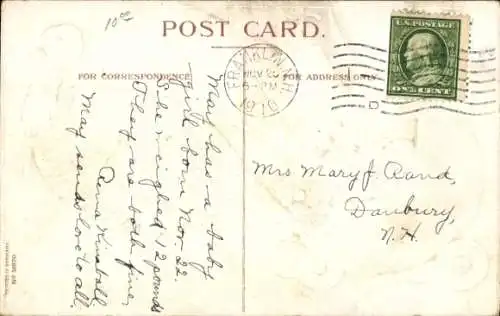 10.00
POST CARD.
FOR CORRESPONDENCE
FOR ADDRESS ONLY
FRANKLIN, N.H.
NOV 25
5-PM
1910
D
U.S. POSTAGE
ONE CENT
May has a baby
girl born Nov. 22.
She weighed 12 pounds
They are both fine,
Rena Kimball
May sends love to all.
Mrs Mary J. Rand,
Danbury,
N.H.